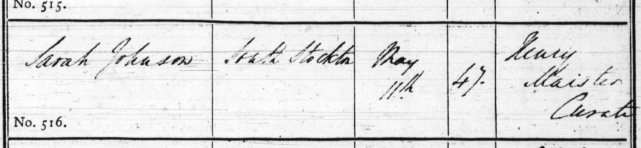 No. 515.
Sarah Johnson South Stockton May 11th 47. Henry Maister Curate
No. 516.